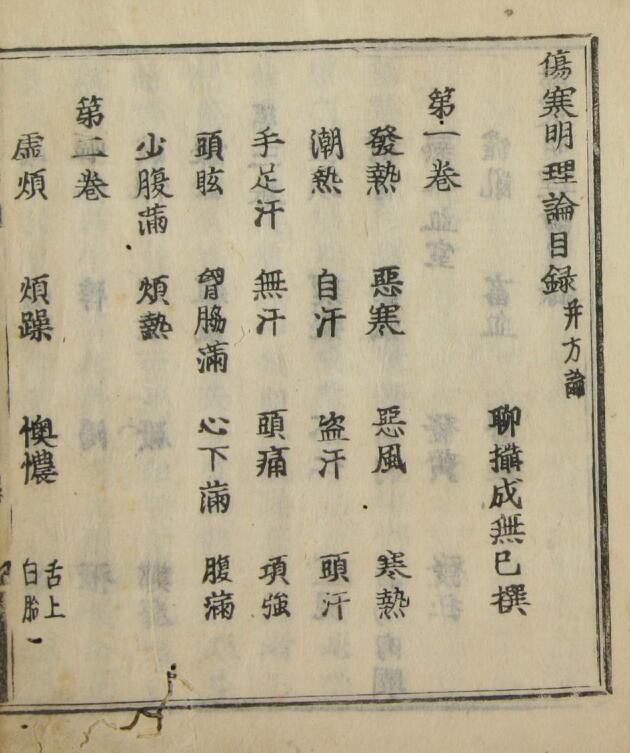 傷寒明理論目録 并方論
聊攝成無已撰
第一卷
發熱 惡寒 惡風 寒熱
潮熱 自汗 盗汗 頭汗
手足汗 無汗 頭痛 項強
頭眩 胷脇滿 心下滿 腹滿
少腹滿 煩熱
第二卷
虚煩 煩躁 懊憹 舌上白胎